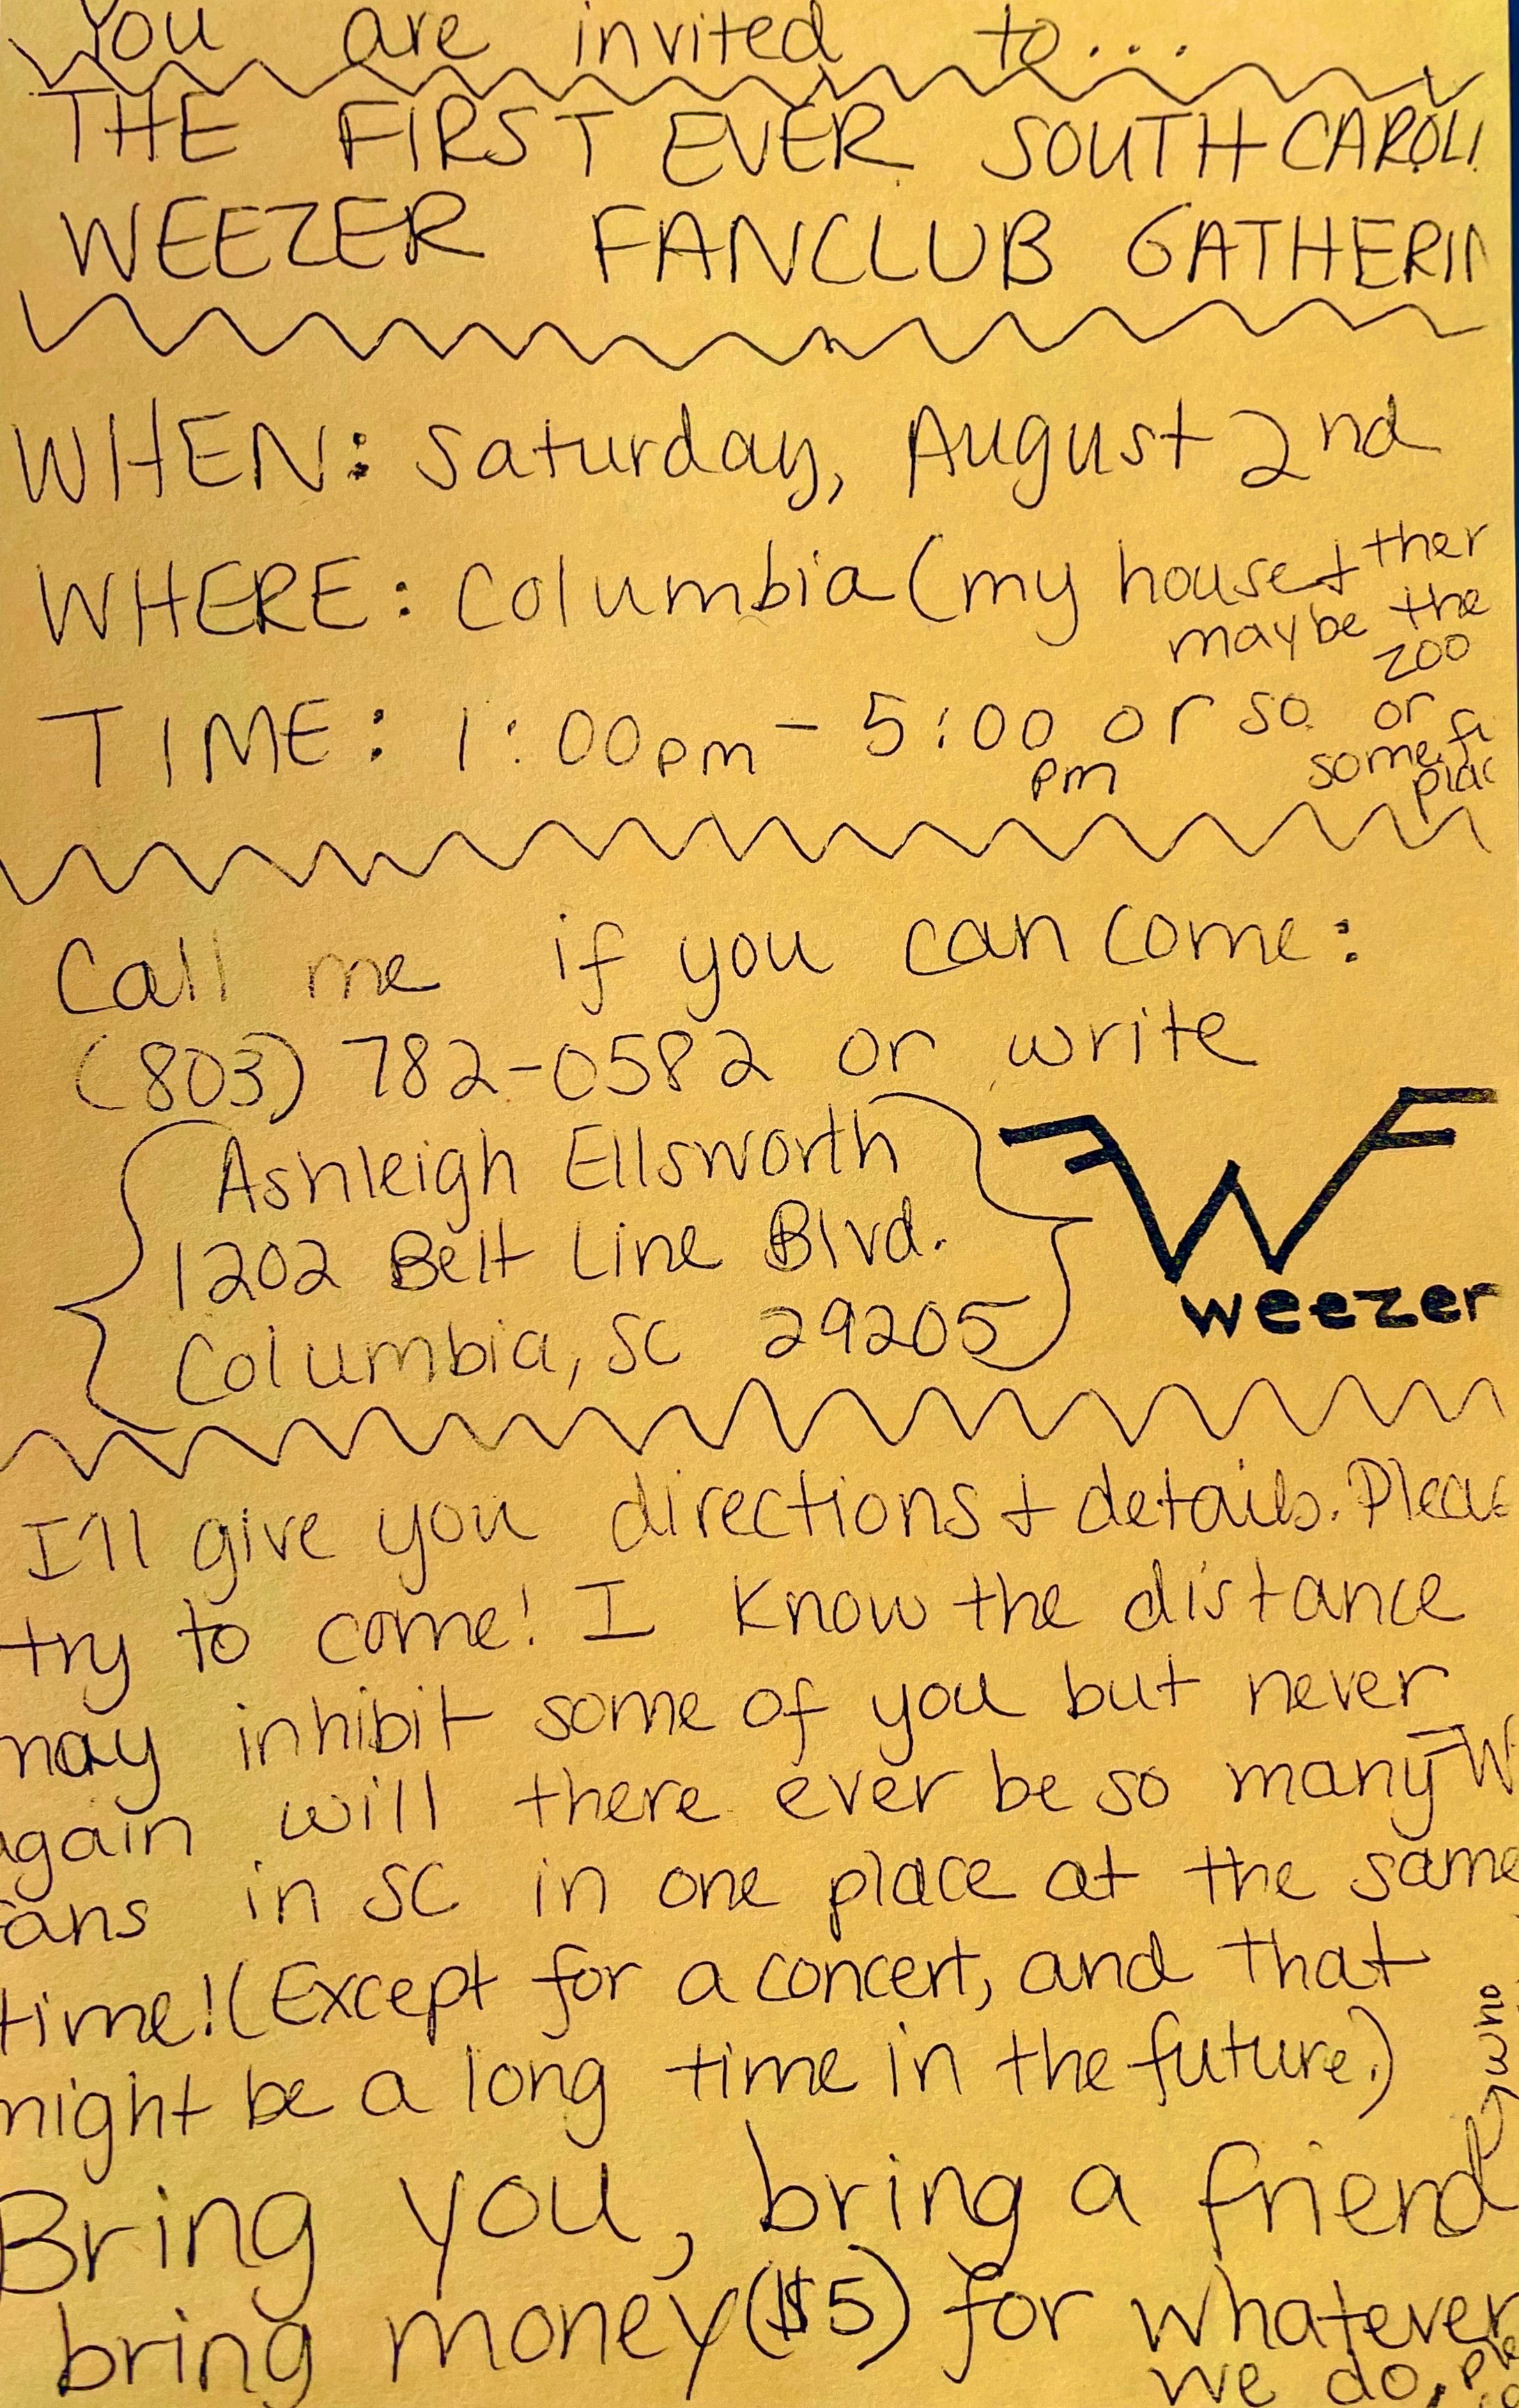 You are invited to...
THE FIRST EVER SOUTH CAROLI
WEEZER FANCLUB GATHERIN
WHEN: Saturday, August 2nd
WHERE: Columbia (my house + ther
maybe the
zoo
or
some fi
plac
TIME: 1:00pm - 5:00 or so
pm
Call me if you can come:
(803) 782-0582 or write
Ashleigh Ellsworth
1202 Belt Line Blvd.
Columbia, SC 29205
W
weezer
I'll give you directions + details. Pleas
try to come! I know the distance
may inhibit some of you but never
again will there ever be so many =W
ans in SC in one place at the same
time! (Except for a concert, and that
night be a long time in the future.)
Bring you, bring a friend
who
bring money ($5) for whatever
we do,